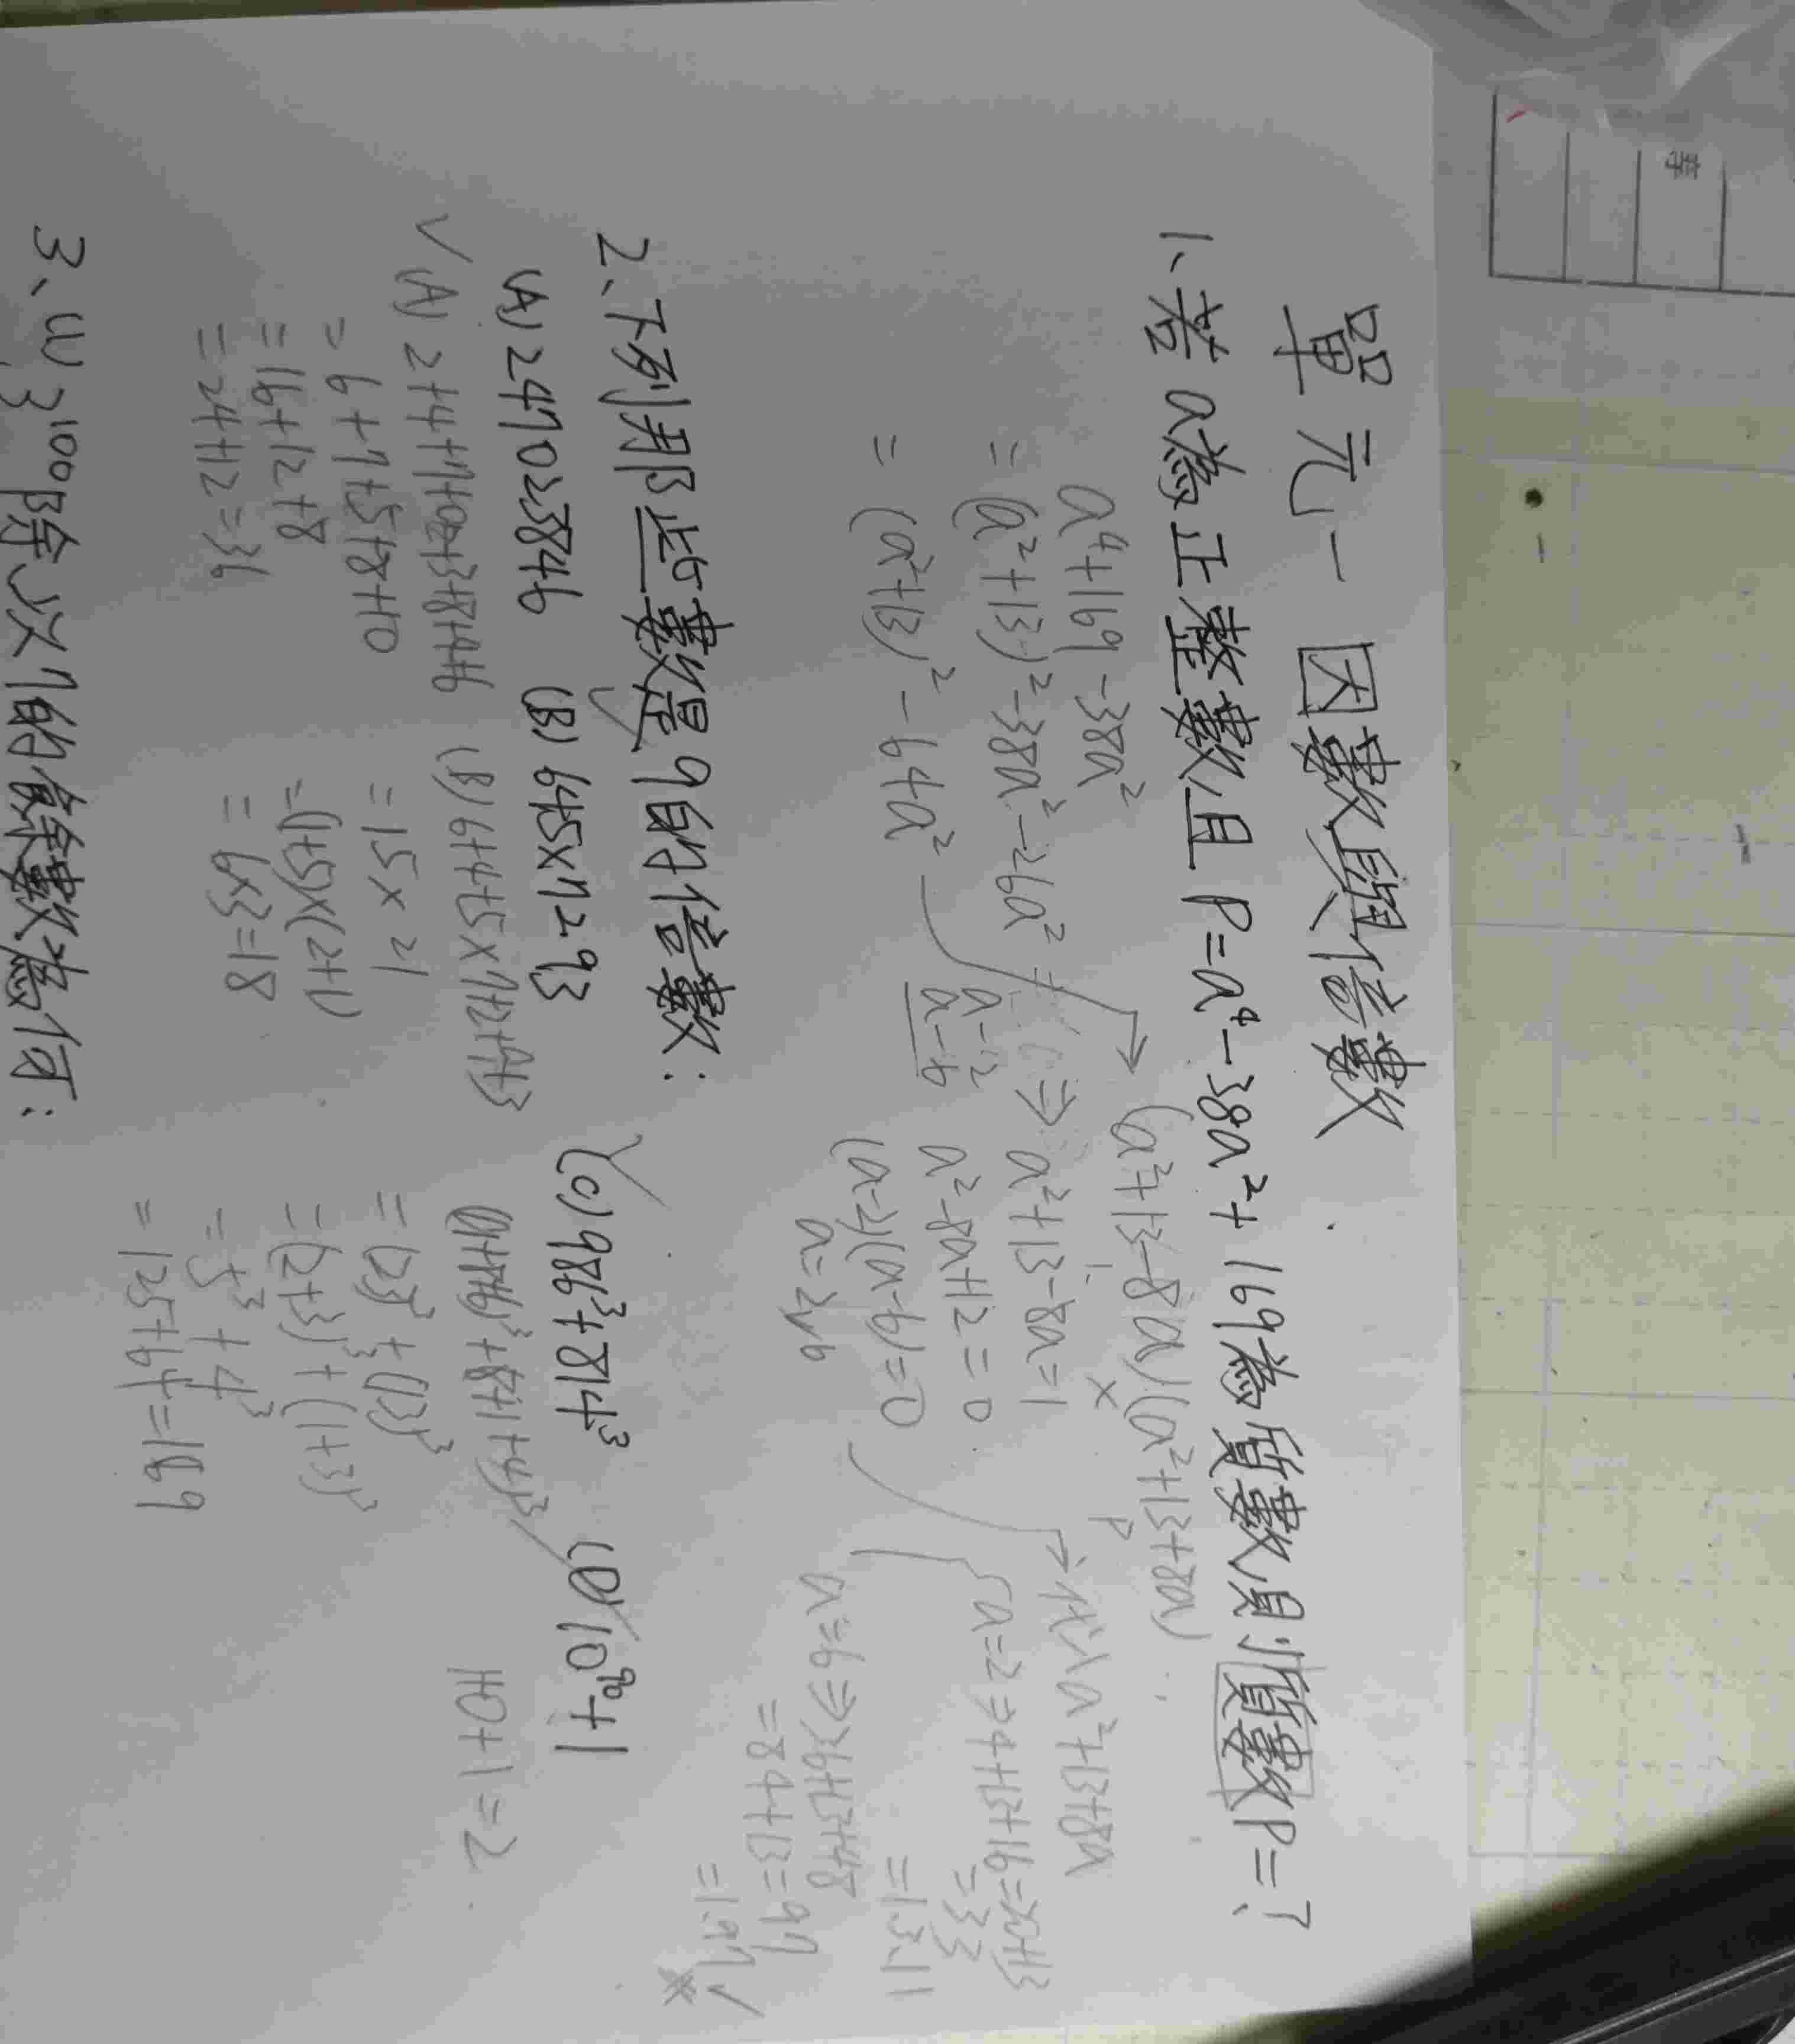 單元一 因數與倍數
1、若a為正整數且P=a⁴-38a²+169為質數則質數P=?
a⁴+169-38a²
=(a²+13)²-38a²-26a²
=(a²+13)²-64a²
(a²+13-8a)(a²+13+8a)
1 × P
⇒ a²+13-8a=1
a²-8a+12=0
(a-2)(a-6)=0
a=2 6
a -2
a -6
a²+13+8a
a=2⇒4+13+16=20+13
=33
=1.3.11
a=6⇒36+13+48
=84+13=97
=1.97 ✓
2、下列那些數是9的倍數:
(A) 24703846 (B) 645×7293 (C) 986³+814³ (D) 10⁹⁰+1
✓(A) 2+4+7+0+3+8+4+6
=6+7+5+8+10
=16+12+8
=24+12=36
(B) 6+4+5×7+2+9+3
=15×21
=(1+5)×(2+1)
=6×3=18
(9+8+6)³+(8+1+4)³
=(23)³+(13)³
=(2+3)³+(1+3)³
=5³+4³
=125+64=189
1+0+1=2
3、(1) 3¹⁰⁰除以7的餘數為何: